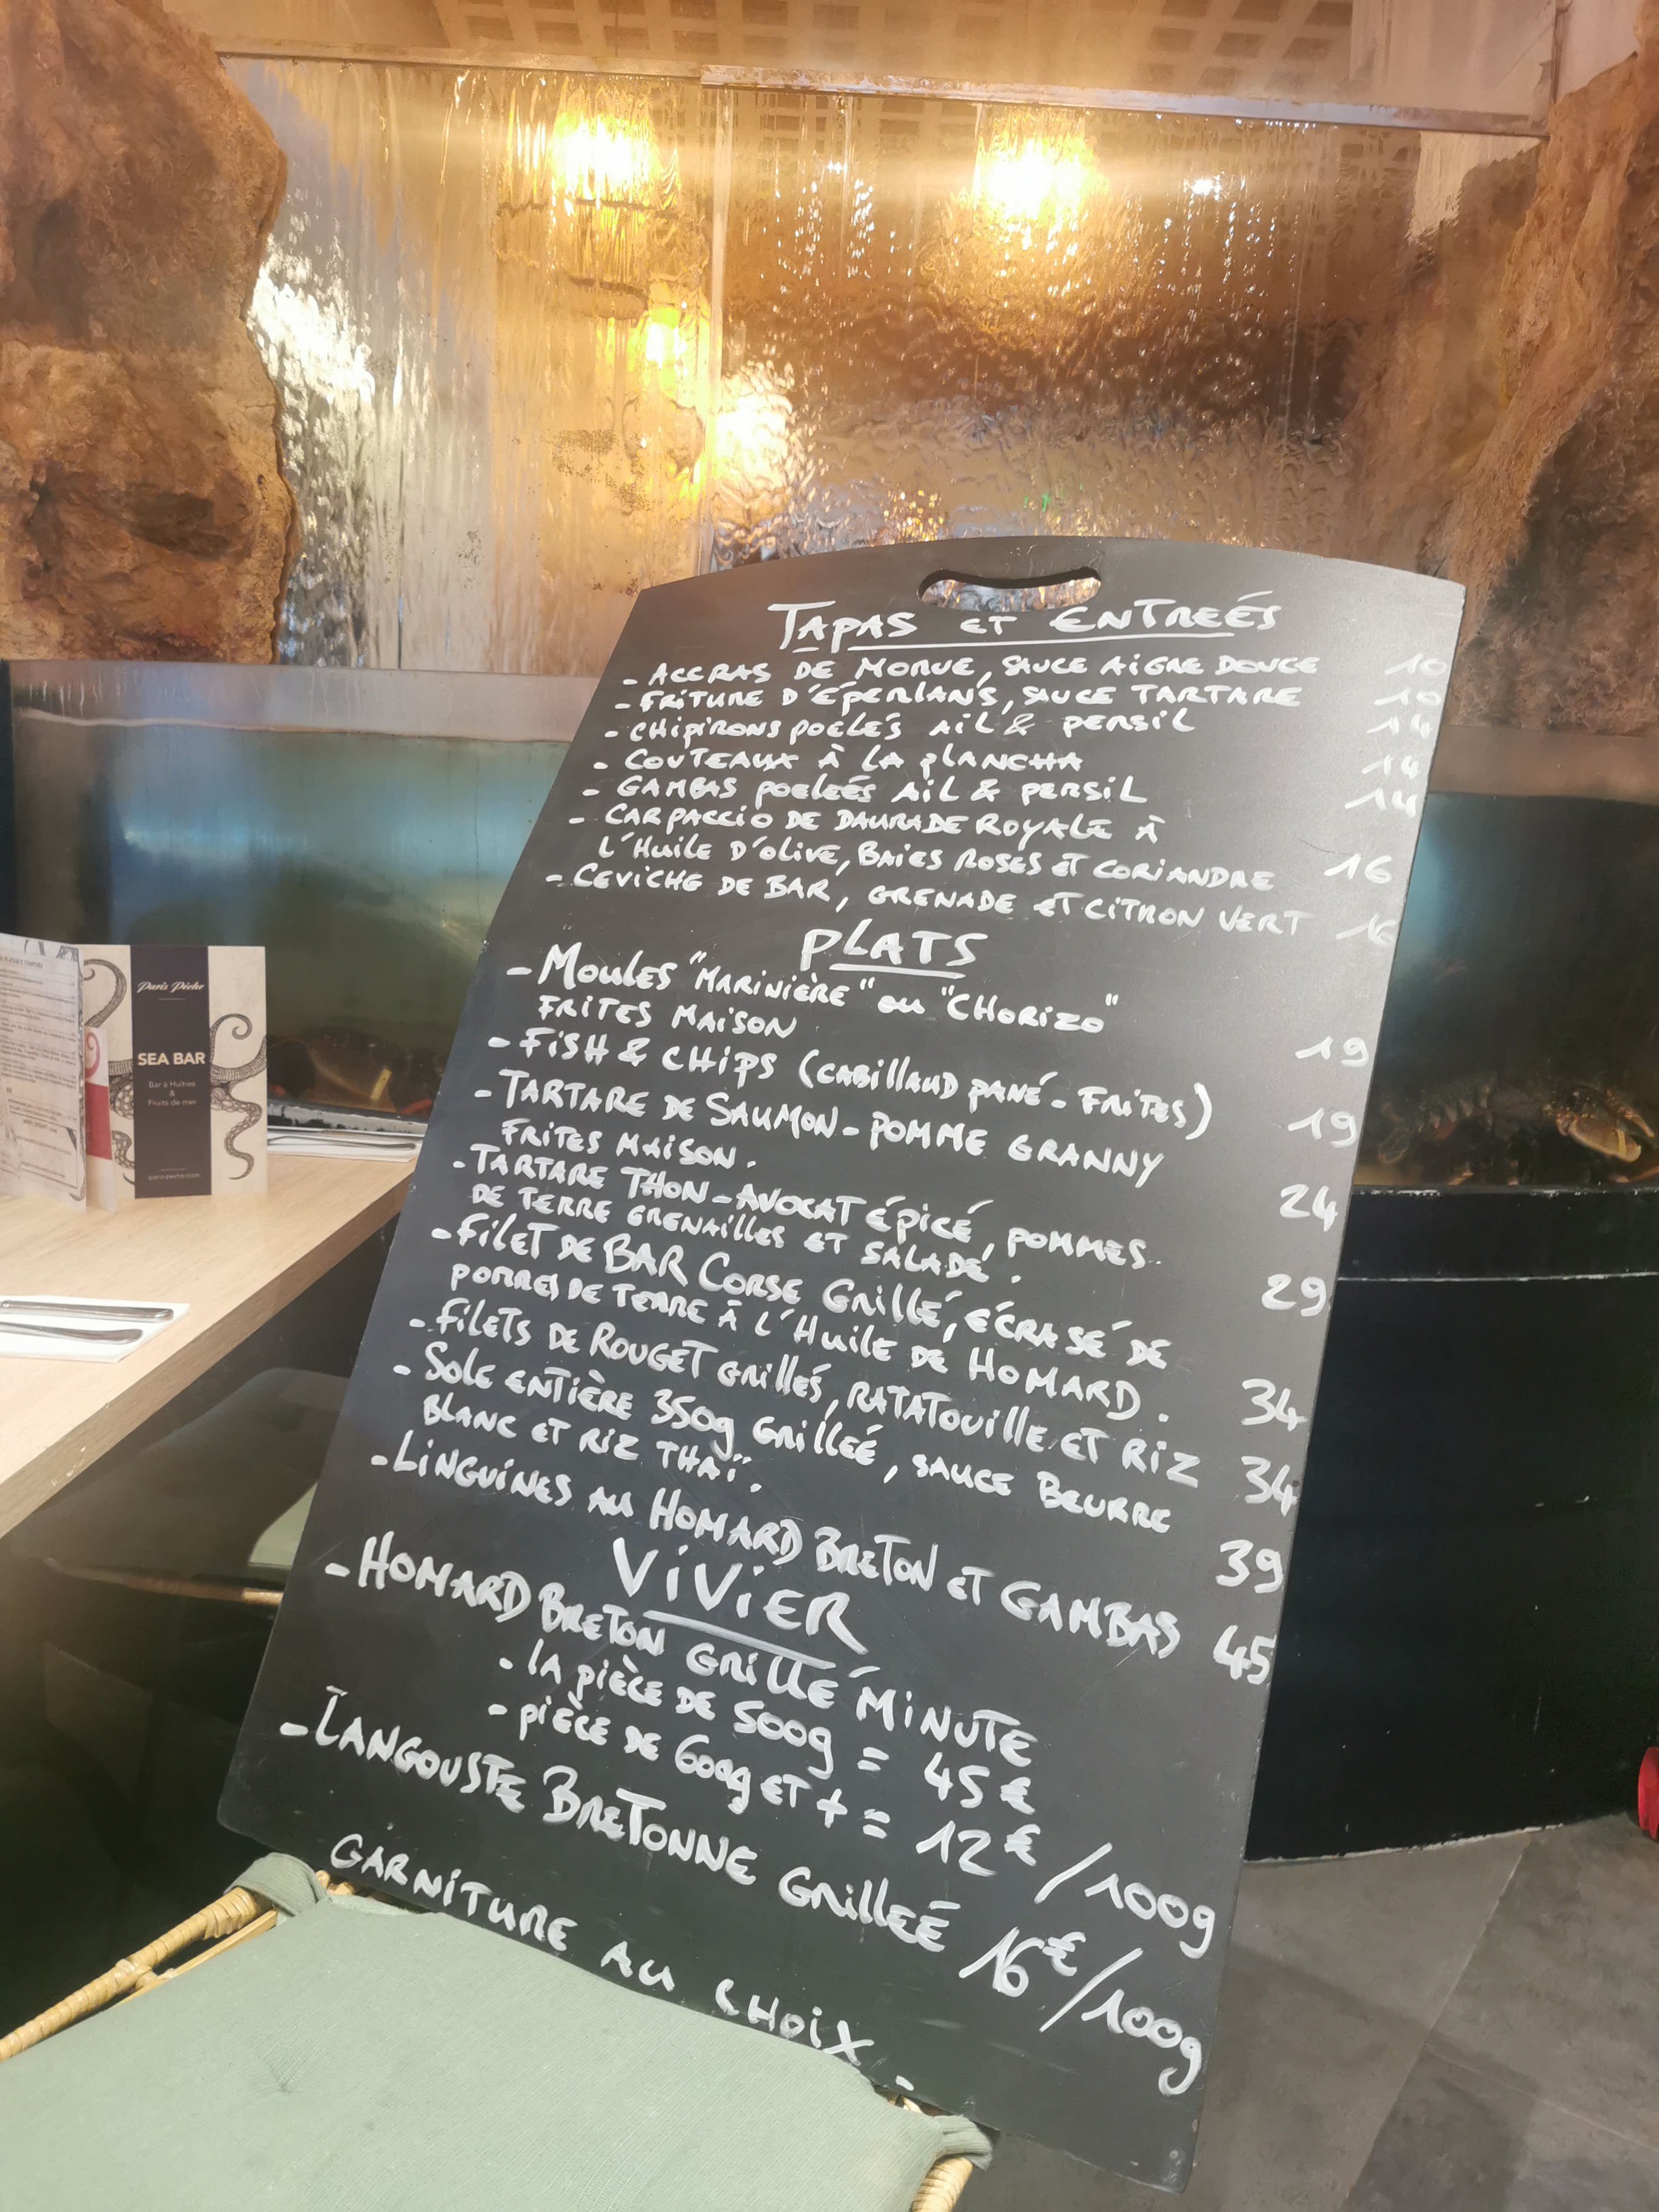 TAPAS ET ENTREÉS
- ACCRAS DE MORUE, SAUCE AIGRE DOUCE 10
- FRITURE D'ÉPERLANS, SAUCE TARTARE 10
- CHIPIRONS POELÉS AIL & PERSIL 14
- COUTEAUX À LA PLANCHA 14
- GAMBAS POELEÉS AIL & PERSIL 14
- CARPACCIO DE DAURADE ROYALE À
L'HUILE D'OLIVE, BAIES ROSES ET CORIANDRE 16
- CEVICHE DE BAR, GRENADE ET CITRON VERT 16
PLATS
- MOULES "MARINIÈRE" OU "CHORIZO"
FRITES MAISON 19
- FISH & CHIPS (CABILLAUD PANÉ - FRITES) 19
- TARTARE DE SAUMON - POMME GRANNY
FRITES MAISON. 24
- TARTARE THON - AVOCAT ÉPICÉ, POMMES
DE TERRE GRENAILLES ET SALADE. 29
- FILET DE BAR CORSE GRILLÉ, ÉCRASÉ DE
POMMES DE TERRE À L'HUILE DE HOMARD. 34
- FILETS DE ROUGET GRILLÉS, RATATOUILLE ET RIZ 34
- SOLE ENTIÈRE 350g GRILLEÉ, SAUCE BEURRE
BLANC ET RIZ THAÏ. 39
- LINGUINES AU HOMARD BRETON ET GAMBAS 45
VIVIER
- HOMARD BRETON GRILLÉ MINUTE
- LA PIÈCE DE 500g = 45€
- PIÈCE DE 600g ET + = 12€/100g
- LANGOUSTE BRETONNE GRILLEÉ 16€/100g
GARNITURE AU CHOIX -
Paris Pêche
SEA BAR
Bar à Huîtres
&
Fruits de mer
paris-peche.com